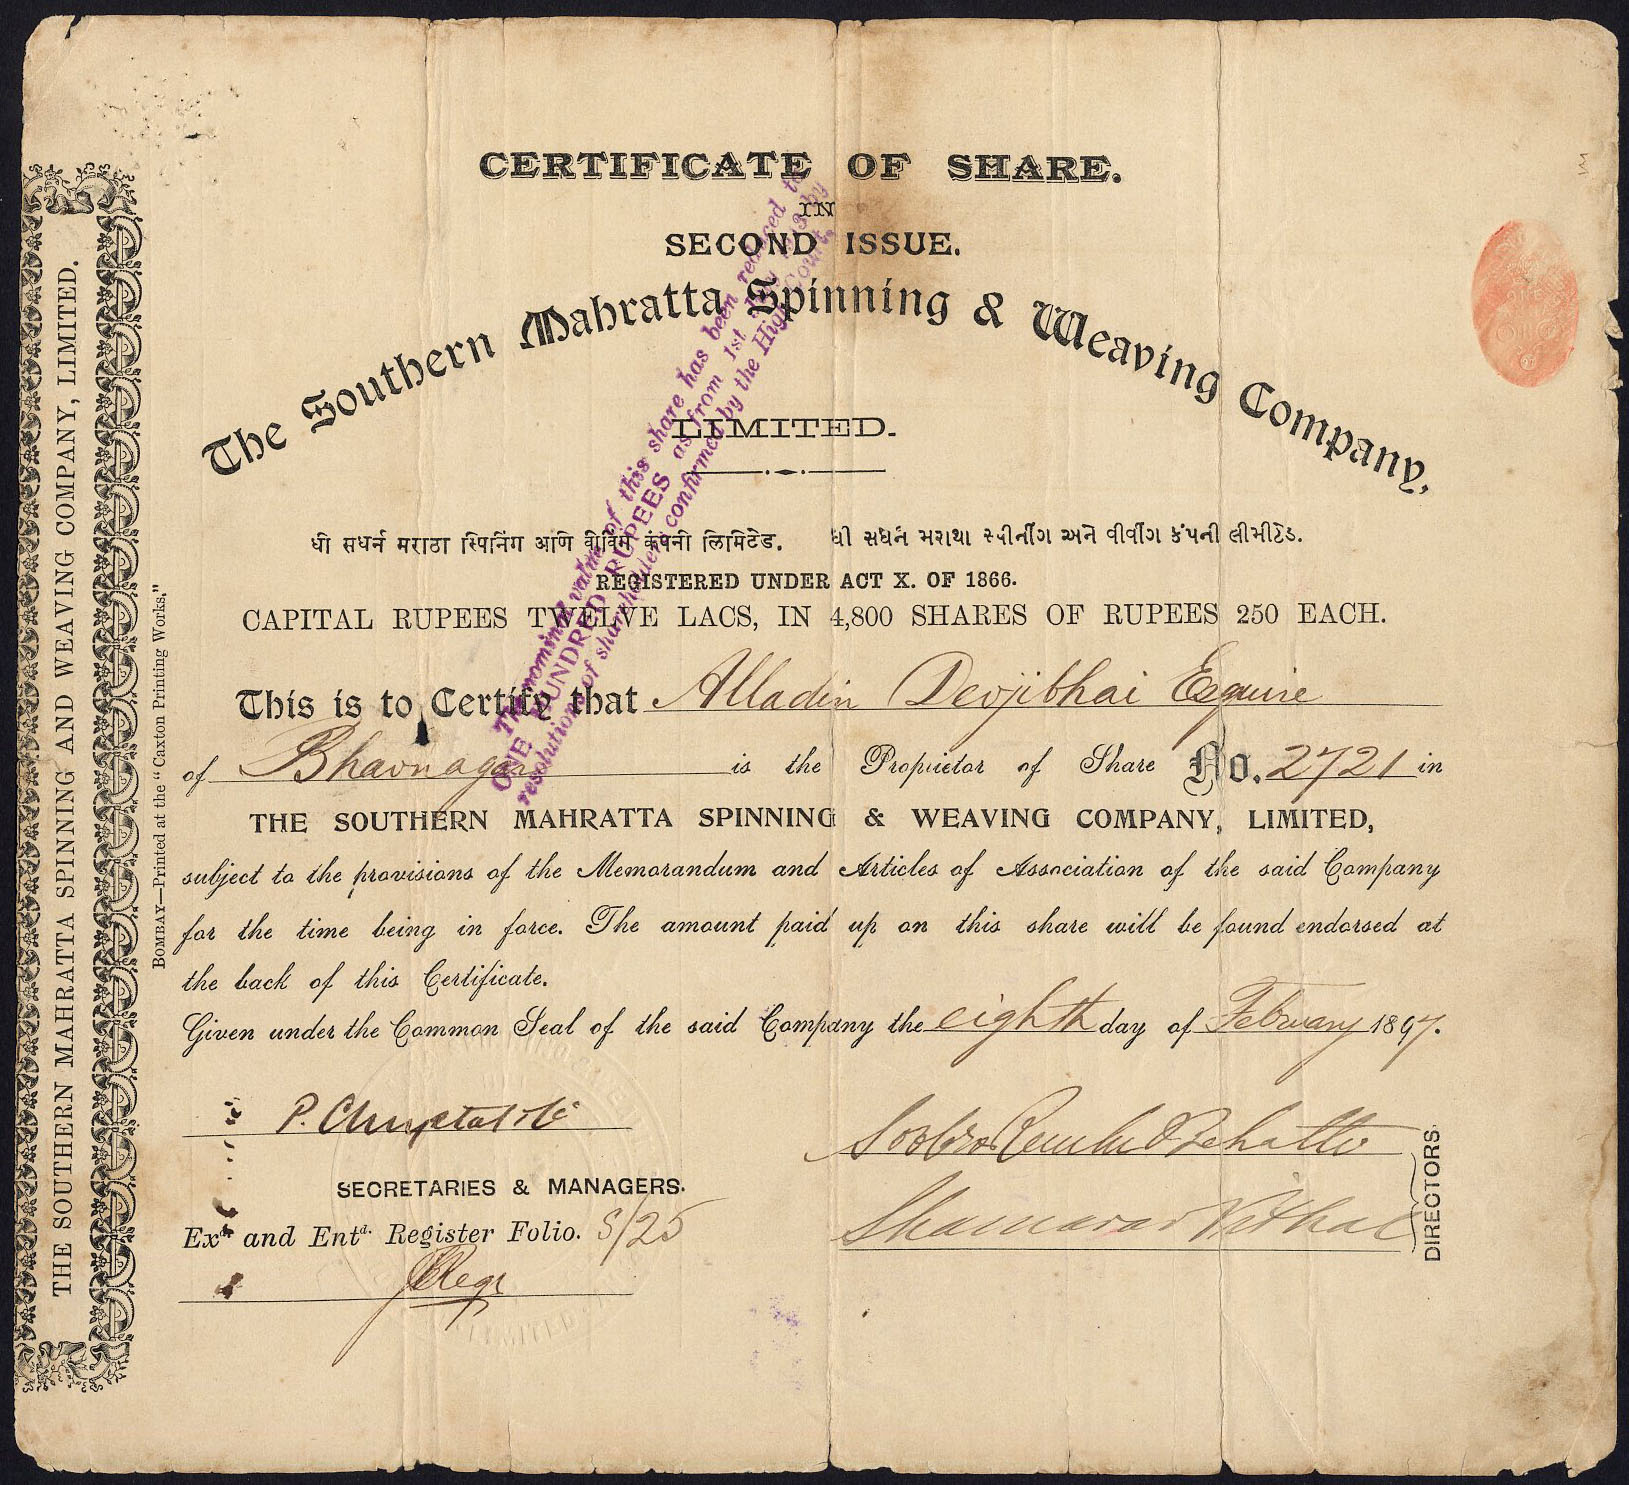 CERTIFICATE OF SHARE.
IN
SECOND ISSUE.
The Southern Mahratta Spinning & Weaving Company,
LIMITED.
धी सधर्न मराठा स्पिनिंग आणि वीविंग कंपनी लिमिटेड. ધી સધર્ન મરાથા સ્પીનીંગ અને વીવીંગ કંપની લીમીટેડ.
REGISTERED UNDER ACT X. OF 1866.
CAPITAL RUPEES TWELVE LACS, IN 4,800 SHARES OF RUPEES 250 EACH.
This is to Certify that Alladin Devjibhai Esquire
of Bhavnagar is the Proprietor of Share No. 2721 in
THE SOUTHERN MAHRATTA SPINNING & WEAVING COMPANY, LIMITED,
subject to the provisions of the Memorandum and Articles of Association of the said Company
for the time being in force. The amount paid up on this share will be found endorsed at
the back of this Certificate.
Given under the Common Seal of the said Company the eighth day of February 1897.
SECRETARIES & MANAGERS.
Exd. and Entd. Register Folio. S/25
DIRECTORS.
The nominal value of this share has been reduced to
ONE HUNDRED RUPEES as from 1st by
resolutions of shareholders confirmed by the High Court.
THE SOUTHERN MAHRATTA SPINNING AND WEAVING COMPANY, LIMITED.
BOMBAY—Printed at the "Caxton Printing Works."
LIMITED